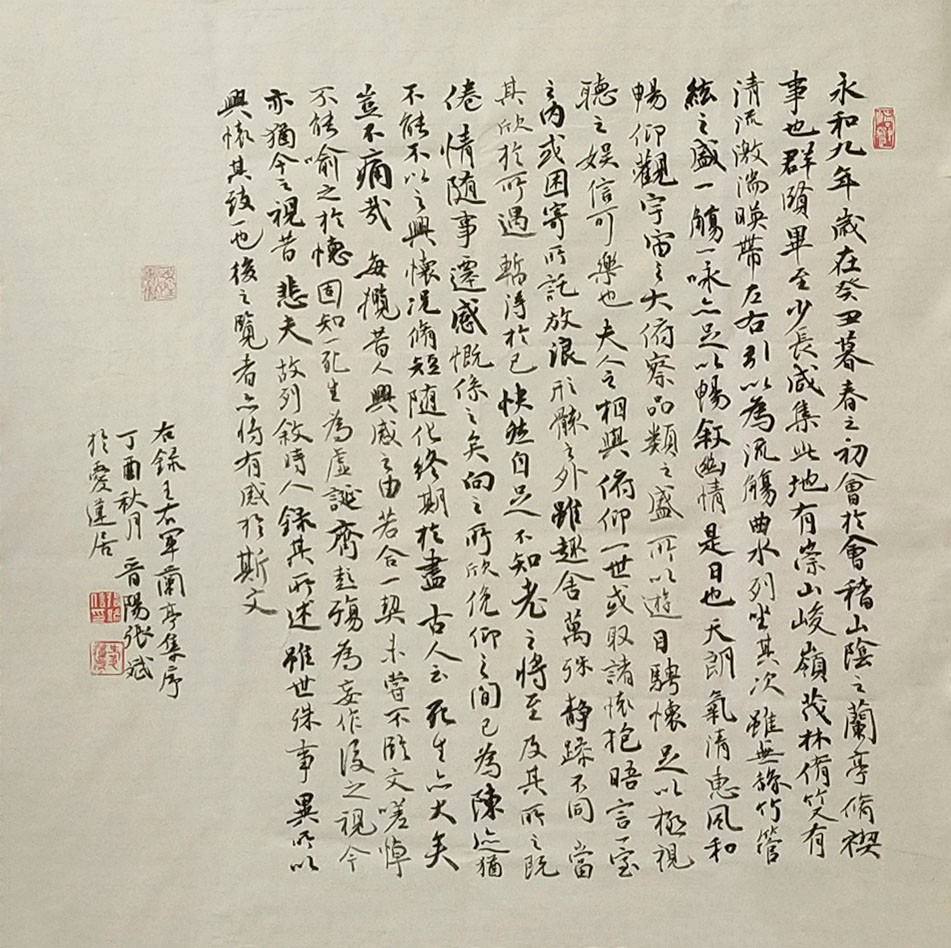 永和九年歲在癸丑暮春之初會於會稽山陰之蘭亭脩禊
事也群賢畢至少長咸集此地有崇山峻嶺茂林脩竹又有
清流激湍暎帶左右引以為流觴曲水列坐其次雖無絲竹管
絃之盛一觴一咏亦足以暢叙幽情是日也天朗氣清惠風和
暢仰觀宇宙之大俯察品類之盛所以遊目騁懷足以極視
聽之娛信可樂也夫人之相與俯仰一世或取諸懷抱晤言一室
之內或因寄所託放浪形骸之外雖趣舍萬殊静躁不同當
其欣於所遇暫得於己快然自足不知老之將至及其所之既
倦情隨事遷感慨係之矣向之所欣俛仰之間已為陳迹猶
不能不以之興懷況脩短隨化終期於盡古人云死生亦大矣
豈不痛哉每攬昔人興感之由若合一契未嘗不臨文嗟悼
不能喻之於懷固知一死生為虛誕齊彭殤為妄作後之視今
亦猶今之視昔悲夫故列敘時人錄其所述雖世殊事異所以
興懷其致一也後之覽者亦將有感於斯文
右錄王右軍蘭亭集序
丁酉秋月晉陽張斌
於愛蓮居